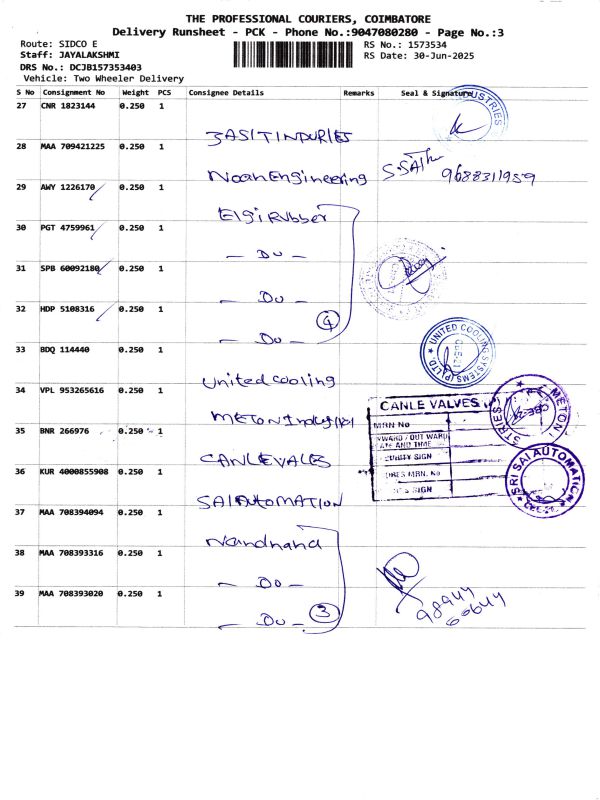 THE PROFESSIONAL COURIERS, COIMBATORE
Delivery Runsheet - PCK - Phone No.:9047080280 - Page No.:3
Route: SIDCO E RS No.: 1573534
Staff: JAYALAKSHMI RS Date: 30-Jun-2025
DRS No.: DCJB157353403
Vehicle: Two Wheeler Delivery
S No Consignment No Weight PCS Consignee Details Remarks Seal & Signature
27 CNR 1823144 0.250 1
USTRIES
3ASITINDURIES
28 MAA 709421225 0.250 1
Noah Engineering
9688311959
29 AWY 1226170 0.250 1
Elgi Rubber
30 PGT 4759961 0.250 1
- Do -
31 SPB 60092180 0.250 1
- Do -
32 HDP 5108316 0.250 1
- Do - 4
33 BDQ 114440 0.250 1
United cooling
UNITED COOLING SYSTEMS (P) LTD
34 VPL 953265616 0.250 1
CANLE VALVES
MRN No
METON
CBE-21
STRIES
35 BNR 266976 0.250 1
CANLEVALES
36 KUR 4000855908 0.250 1
SAI AUTOMATION
SRI SAI AUTOMATION
37 MAA 708394094 0.250 1
Nandnana
38 MAA 708393316 0.250 1
- Do -
39 MAA 708393020 0.250 1
- Do - 3
98944
60644